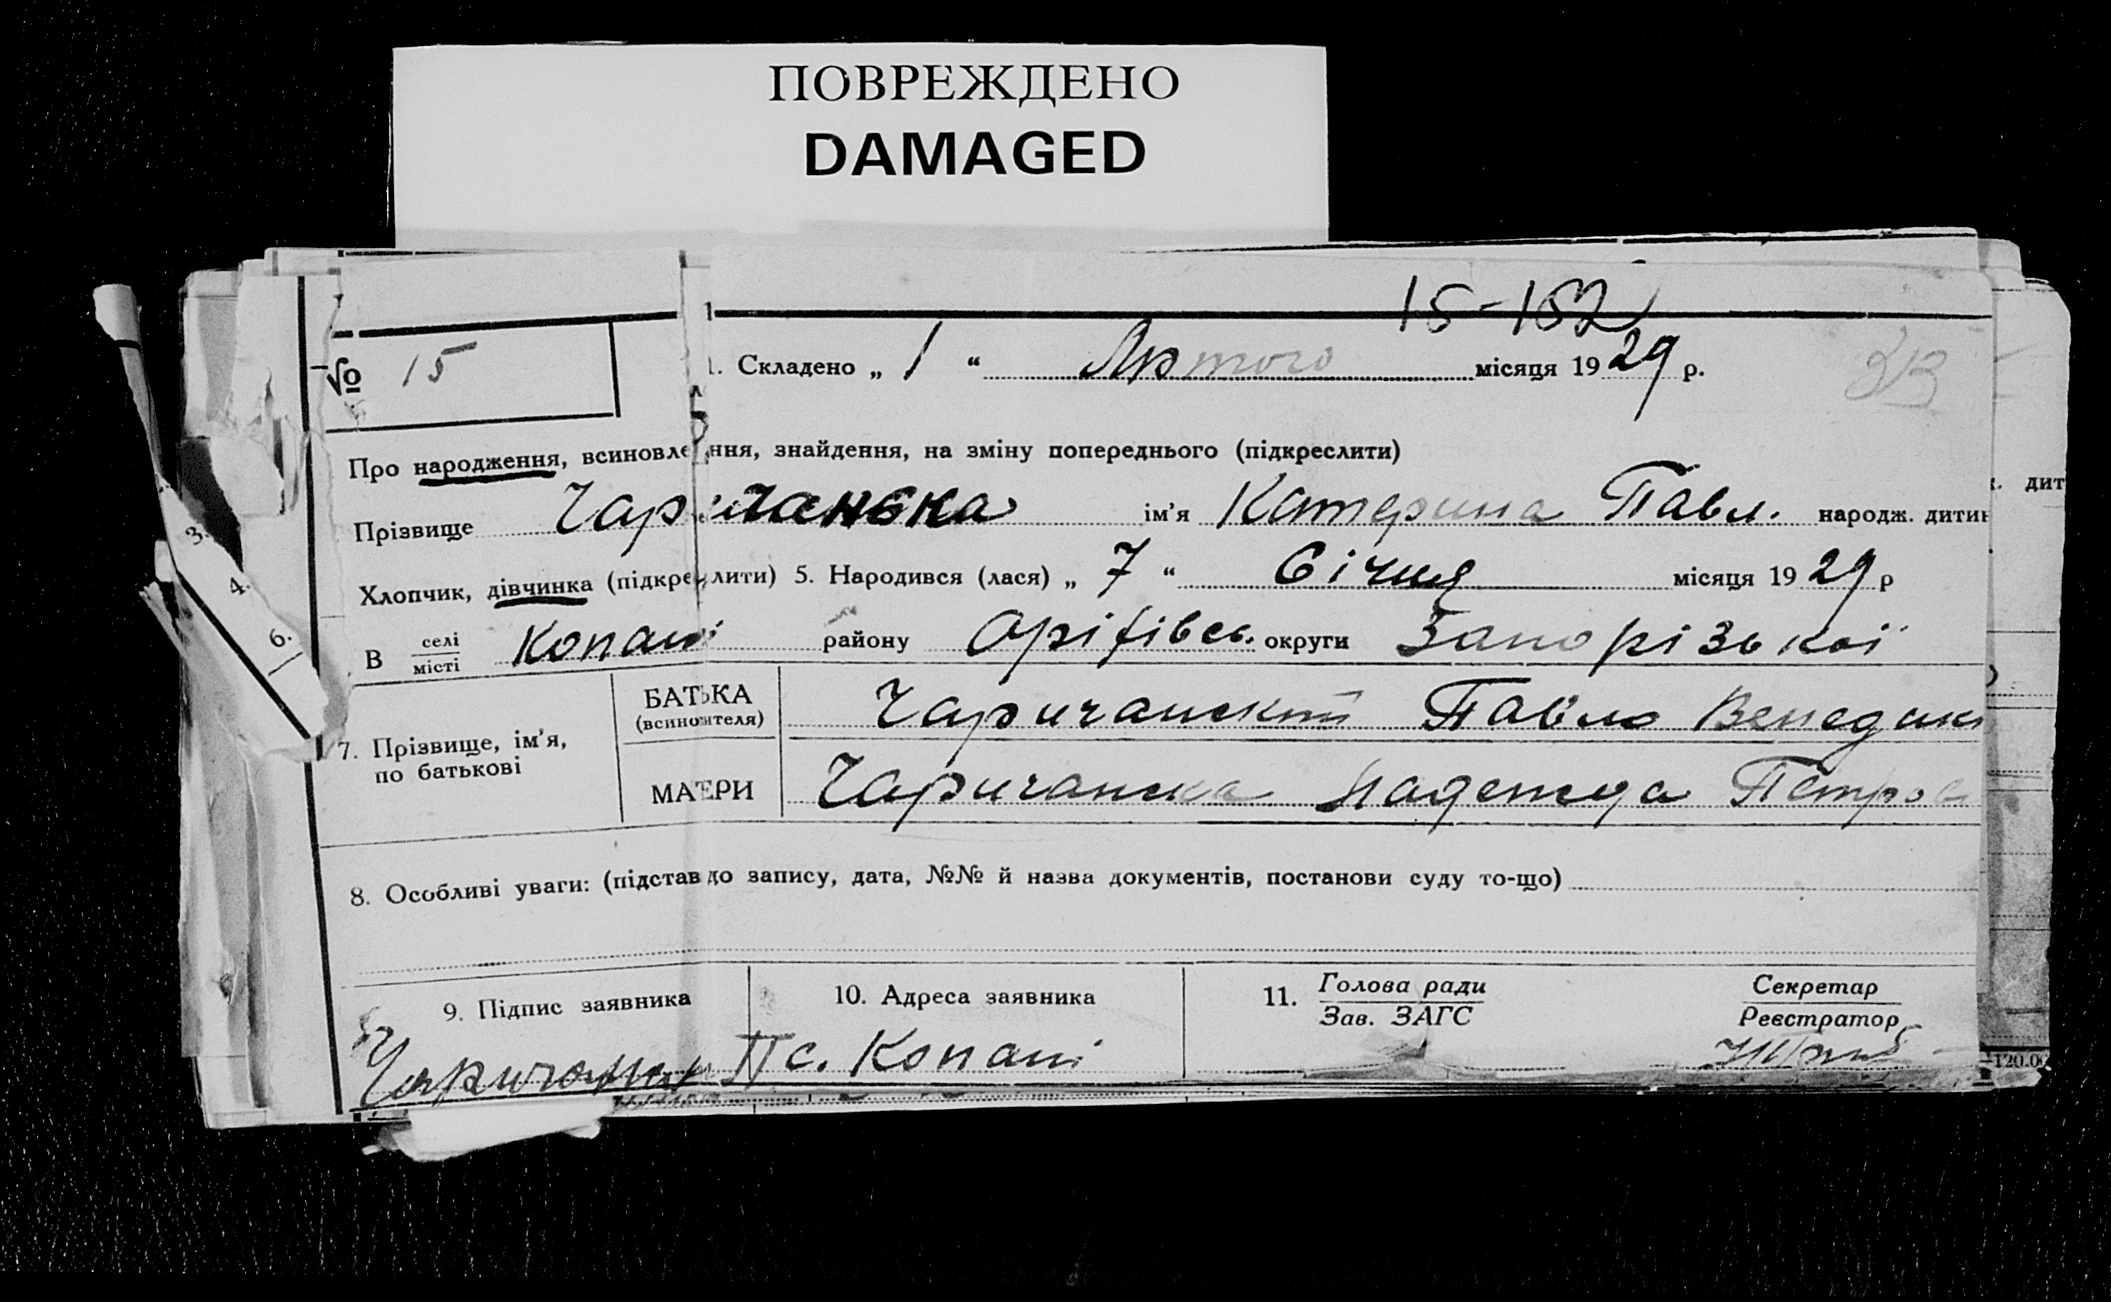 ПОВРЕЖДЕНО
DAMAGED
15-152
№ 15
1. Складено „ 1 “ Лютого місяця 1929 р.
33
Про народження, всиновлення, знайдення, на зміну попереднього (підкреслити)
Прізвище Чаричанська ім’я Катерина Павл. народж. дитин
3.
Хлопчик, дівчинка (підкреслити) 5. Народився (лася) „ 7 “ Січня місяця 1929 р
4.
В селі
місті Копані району Оріхівсь. округи Запорізької
6.
7. Прізвище, ім’я,
по батькові
БАТЬКА
(всиновителя) Чаричанський Павло Венедикт
МАТЕРИ Чаричанска Надежда Петров
8. Особливі уваги: (підстав до запису, дата, №№ й назва документів, постанови суду то-що)
9. Підпис заявника
10. Адреса заявника
11. Голова ради
Зав. ЗАГС
Секретар
Реєстратор
П с. Копані
120.00
дит